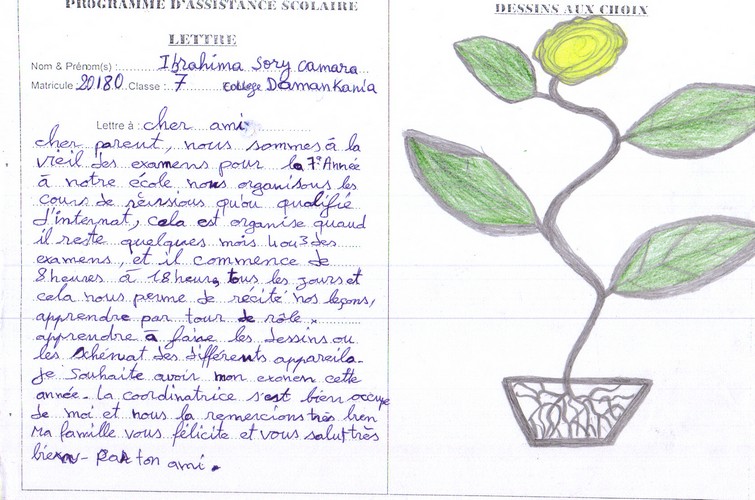 PROGRAMME D'ASSISTANCE SCOLAIRE
LETTRE
Nom & Prénom(s) : Ibrahima Sory Camara
Matricule 20180 Classe : 7 College Damankania
Lettre à : cher ami
cher parent, nous sommes à la
vieil des examens pour la 7e Année
à notre école nous organisons les
cours de révisions qu'on qualifié
d'internat, cela est organise quand
il reste quelques mois 4 ou 3 des
examens, et il commence de
8 heures à 18 heures tous les jours et
cela nous perme de récité nos leçons,
apprendre par tour de rôle,
apprendre à faire les dessins ou
les schémat des différents appareils.
Je Souhaite avoir mon examen cette
année. La coordinatrice s'est bien occupe
de moi et nous la remercions très bien
Ma famille vous félicite et vous salut très
bien. Par ton ami.
DESSINS AUX CHOIX